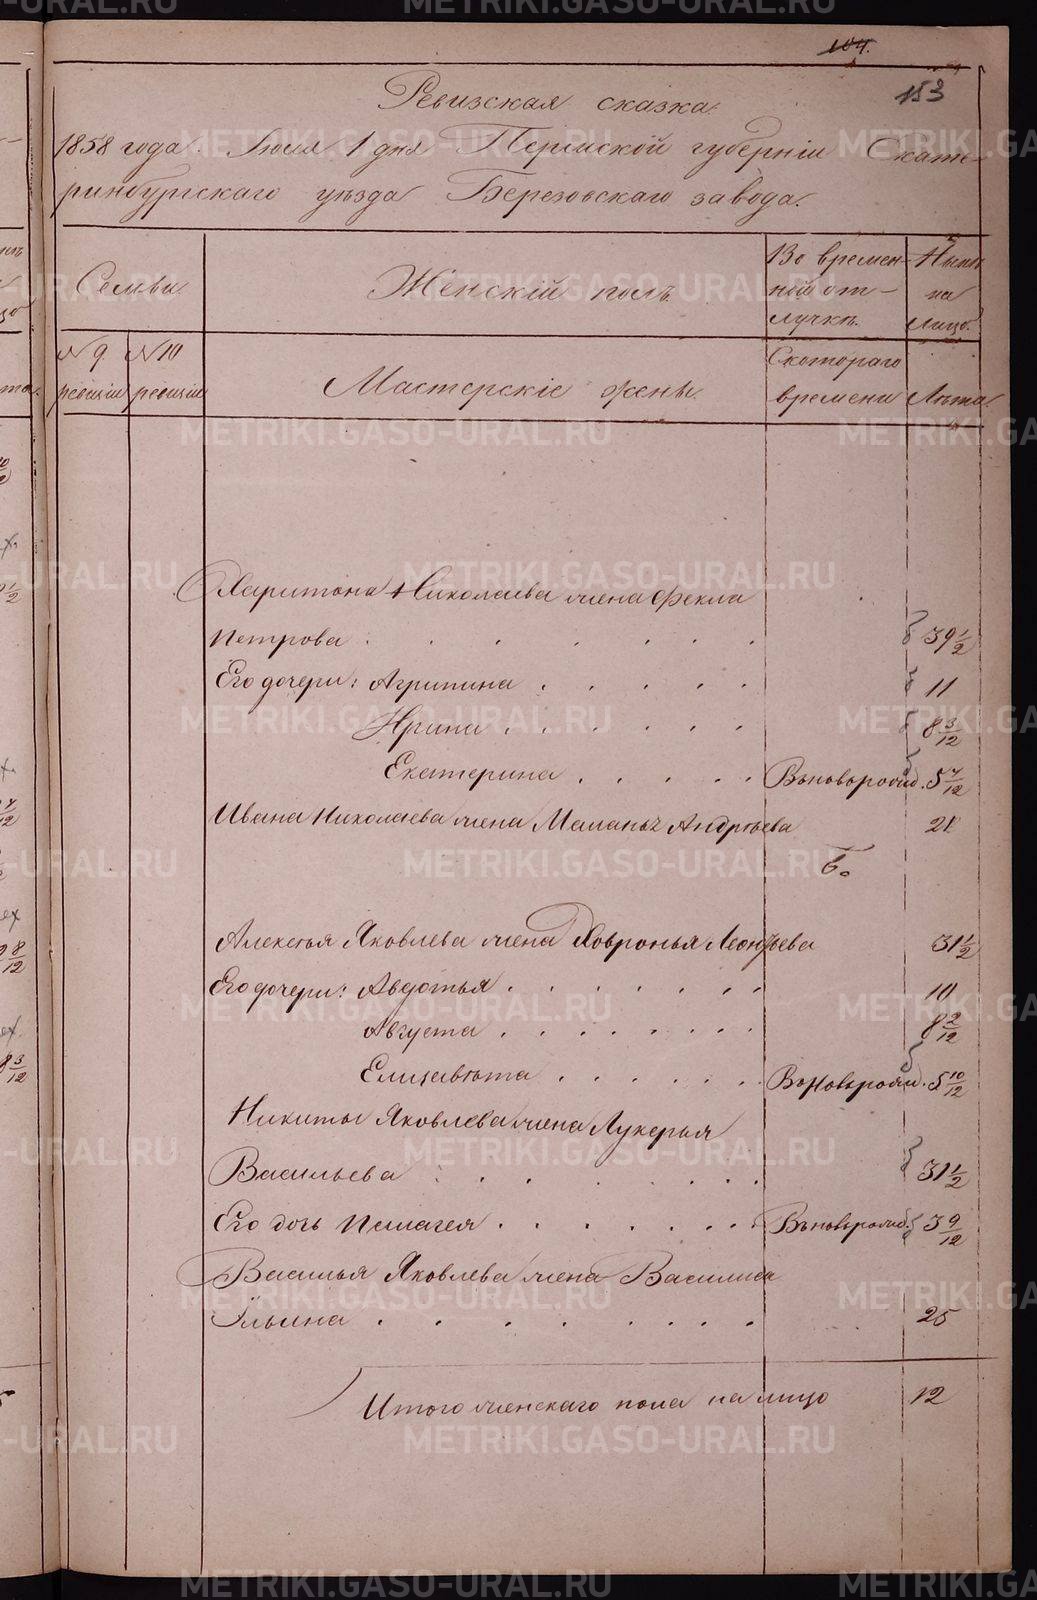 104.
153
Ревизская сказка.
1858 года. Июля 1 дня Пермской губернiи Екате-
ринбургскаго уѣзда Березовскаго завода.
Семьи
Женскiй полъ
Во времен-
ной от-
лучкѣ.
Нынѣ
на
лицо.
№ 9
ревизiи
№ 10
ревизiи
Мастерскiе жены.
Скотораго
времени
Лѣта
Харитона Николаева жена Фекла
Петрова 39 1/2
Его дочери: Агрипина 11
Ирина 8 3/12
Екатерина Вновьрожд. 5 4/12
Ивана Николаева жена Маланья Андрѣева 21
Б.
Алексѣя Яковлева жена Хавронья Леонтьева 31 1/2
Его дочери: Авдотья 10
Августа 8 2/12
Елизавѣта Вновьрожд. 5 10/12
Никиты Яковлева жена Лукерья
Васильева 31 1/2
Его дочь Пелагея Вновьрожд. 3 9/12
Василья Яковлева жена Василиса
Ильина 25
Итого женскаго пола на лицо 12
METRIKI.GASO-URAL.RU